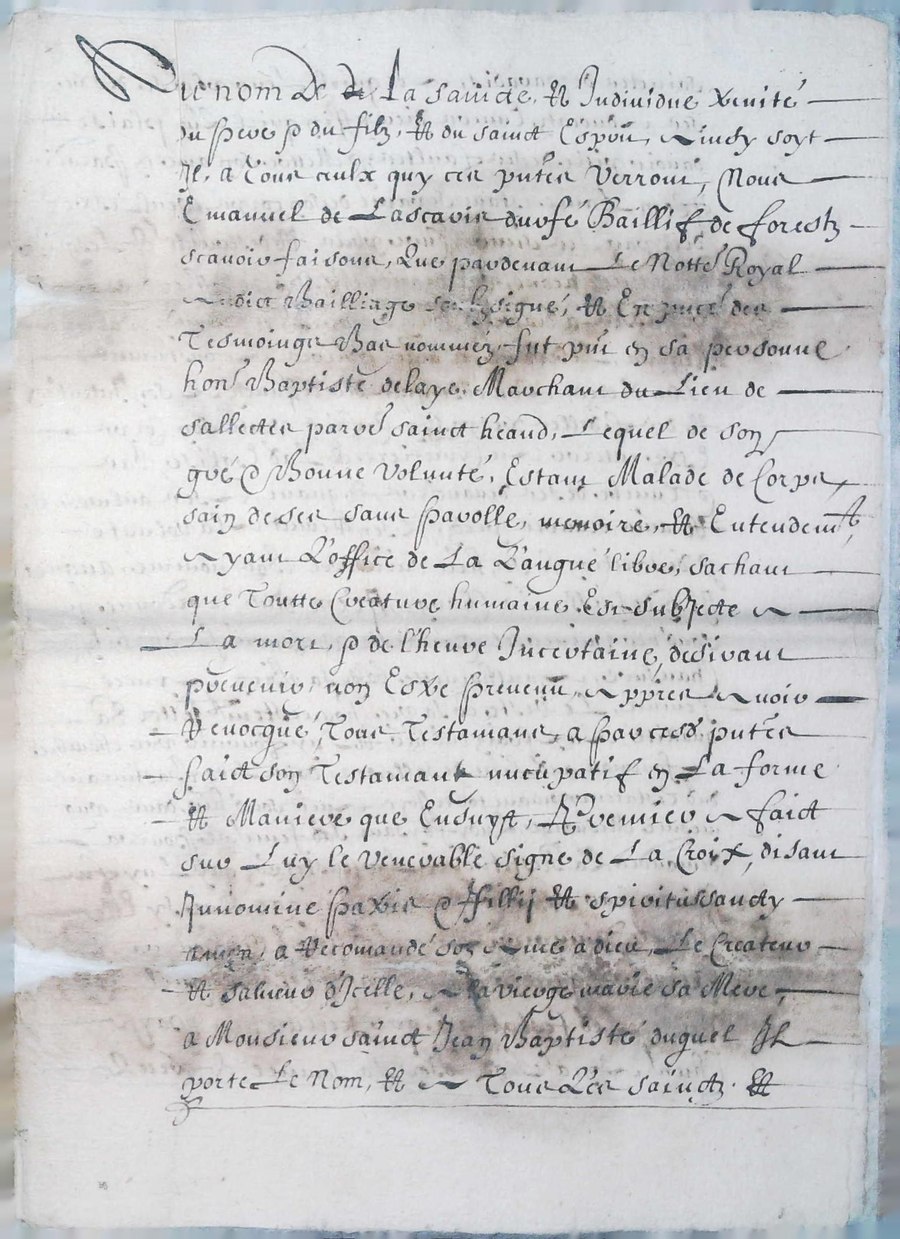 Au nom de de La saincte, Et Individue trinité
Du pere & du filz, Et du sainct Esprit, Ainsy soyt
Il, a Tous ceulx quy ces pntes Verront, Nous
Emanuel de Lascaris durfé Baillif de forestz
scavoir faisons, Que pardevant Le Nottre Royal
Audict Bailliage soubzsigné, Et En pnce des
Tesmoings Bas nommez, fut pnt en sa personne
honr Baptiste delaye Marchant du Lieu de
sallectes parve sainct heand, Lequel de son
gré & Bonne Volunté, Estant Malade de Corps,
sain de ses sans parolle, memoire, Et Entendemt,
Ayant L'office de La Langue libre, sachant
que Toutte Creature humaine Est subjecte A
La mort, & de l'heure Incertaine, desirant
prevenir non Estre prevenu, Appres Avoir
Revocqué, Tous Testamans, a par cesd pntes
faict son Testamant nucupatif en La forme
Et Maniere que Ensuyt, Premier A faict
sur Luy le venerable signe de La Croix, disant
Innomine patris & ffillij Et spiritussancty
amen, a Recomandé son Ame a dieu, Le Createur
Et salveur d'Icelle, A La vierge marie sa Mere,
a Monsieur sainct Jean Baptiste duquel Il
porte Le Nom, Et A Tous Les sainctz Et